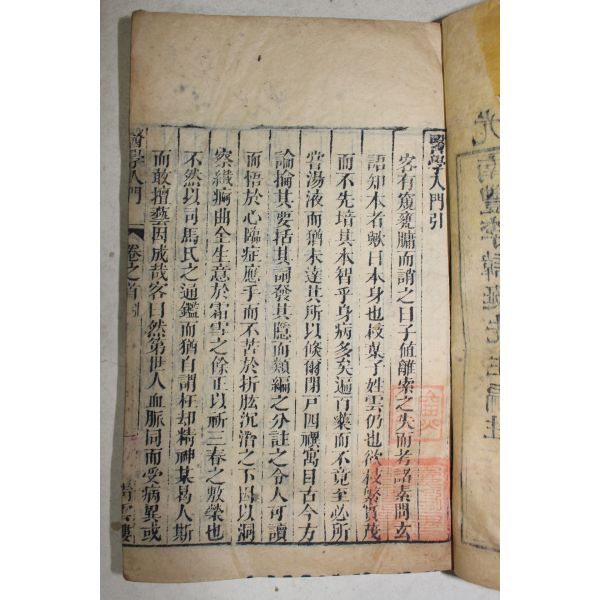 醫學入門引
客有窺甕牖而誚之曰子值離索之失而考諸素問玄
語知本者歟曰本身也枝葉子姓雲仍也欲枝繁實茂
而不先培其本智乎身病多矣遍百藥而不竟至必所
嘗湯液而猶未達其所以候爾閉戶四禩寓目古今方
論掄其要括其詞發其隱而類編之分註之令人可讀
而悟於心臨症應手而不苦於折肱沉潛之下因以洞
察纖痾曲全生意於霜雪之餘正以祈三春之敷榮也
不然以司馬氏之通鑑而猶自謂枉却精神某曷人斯
而敢擅藝因成哉客曰然第世人血脈同而受病異或
醫學入門 卷之首 引 一